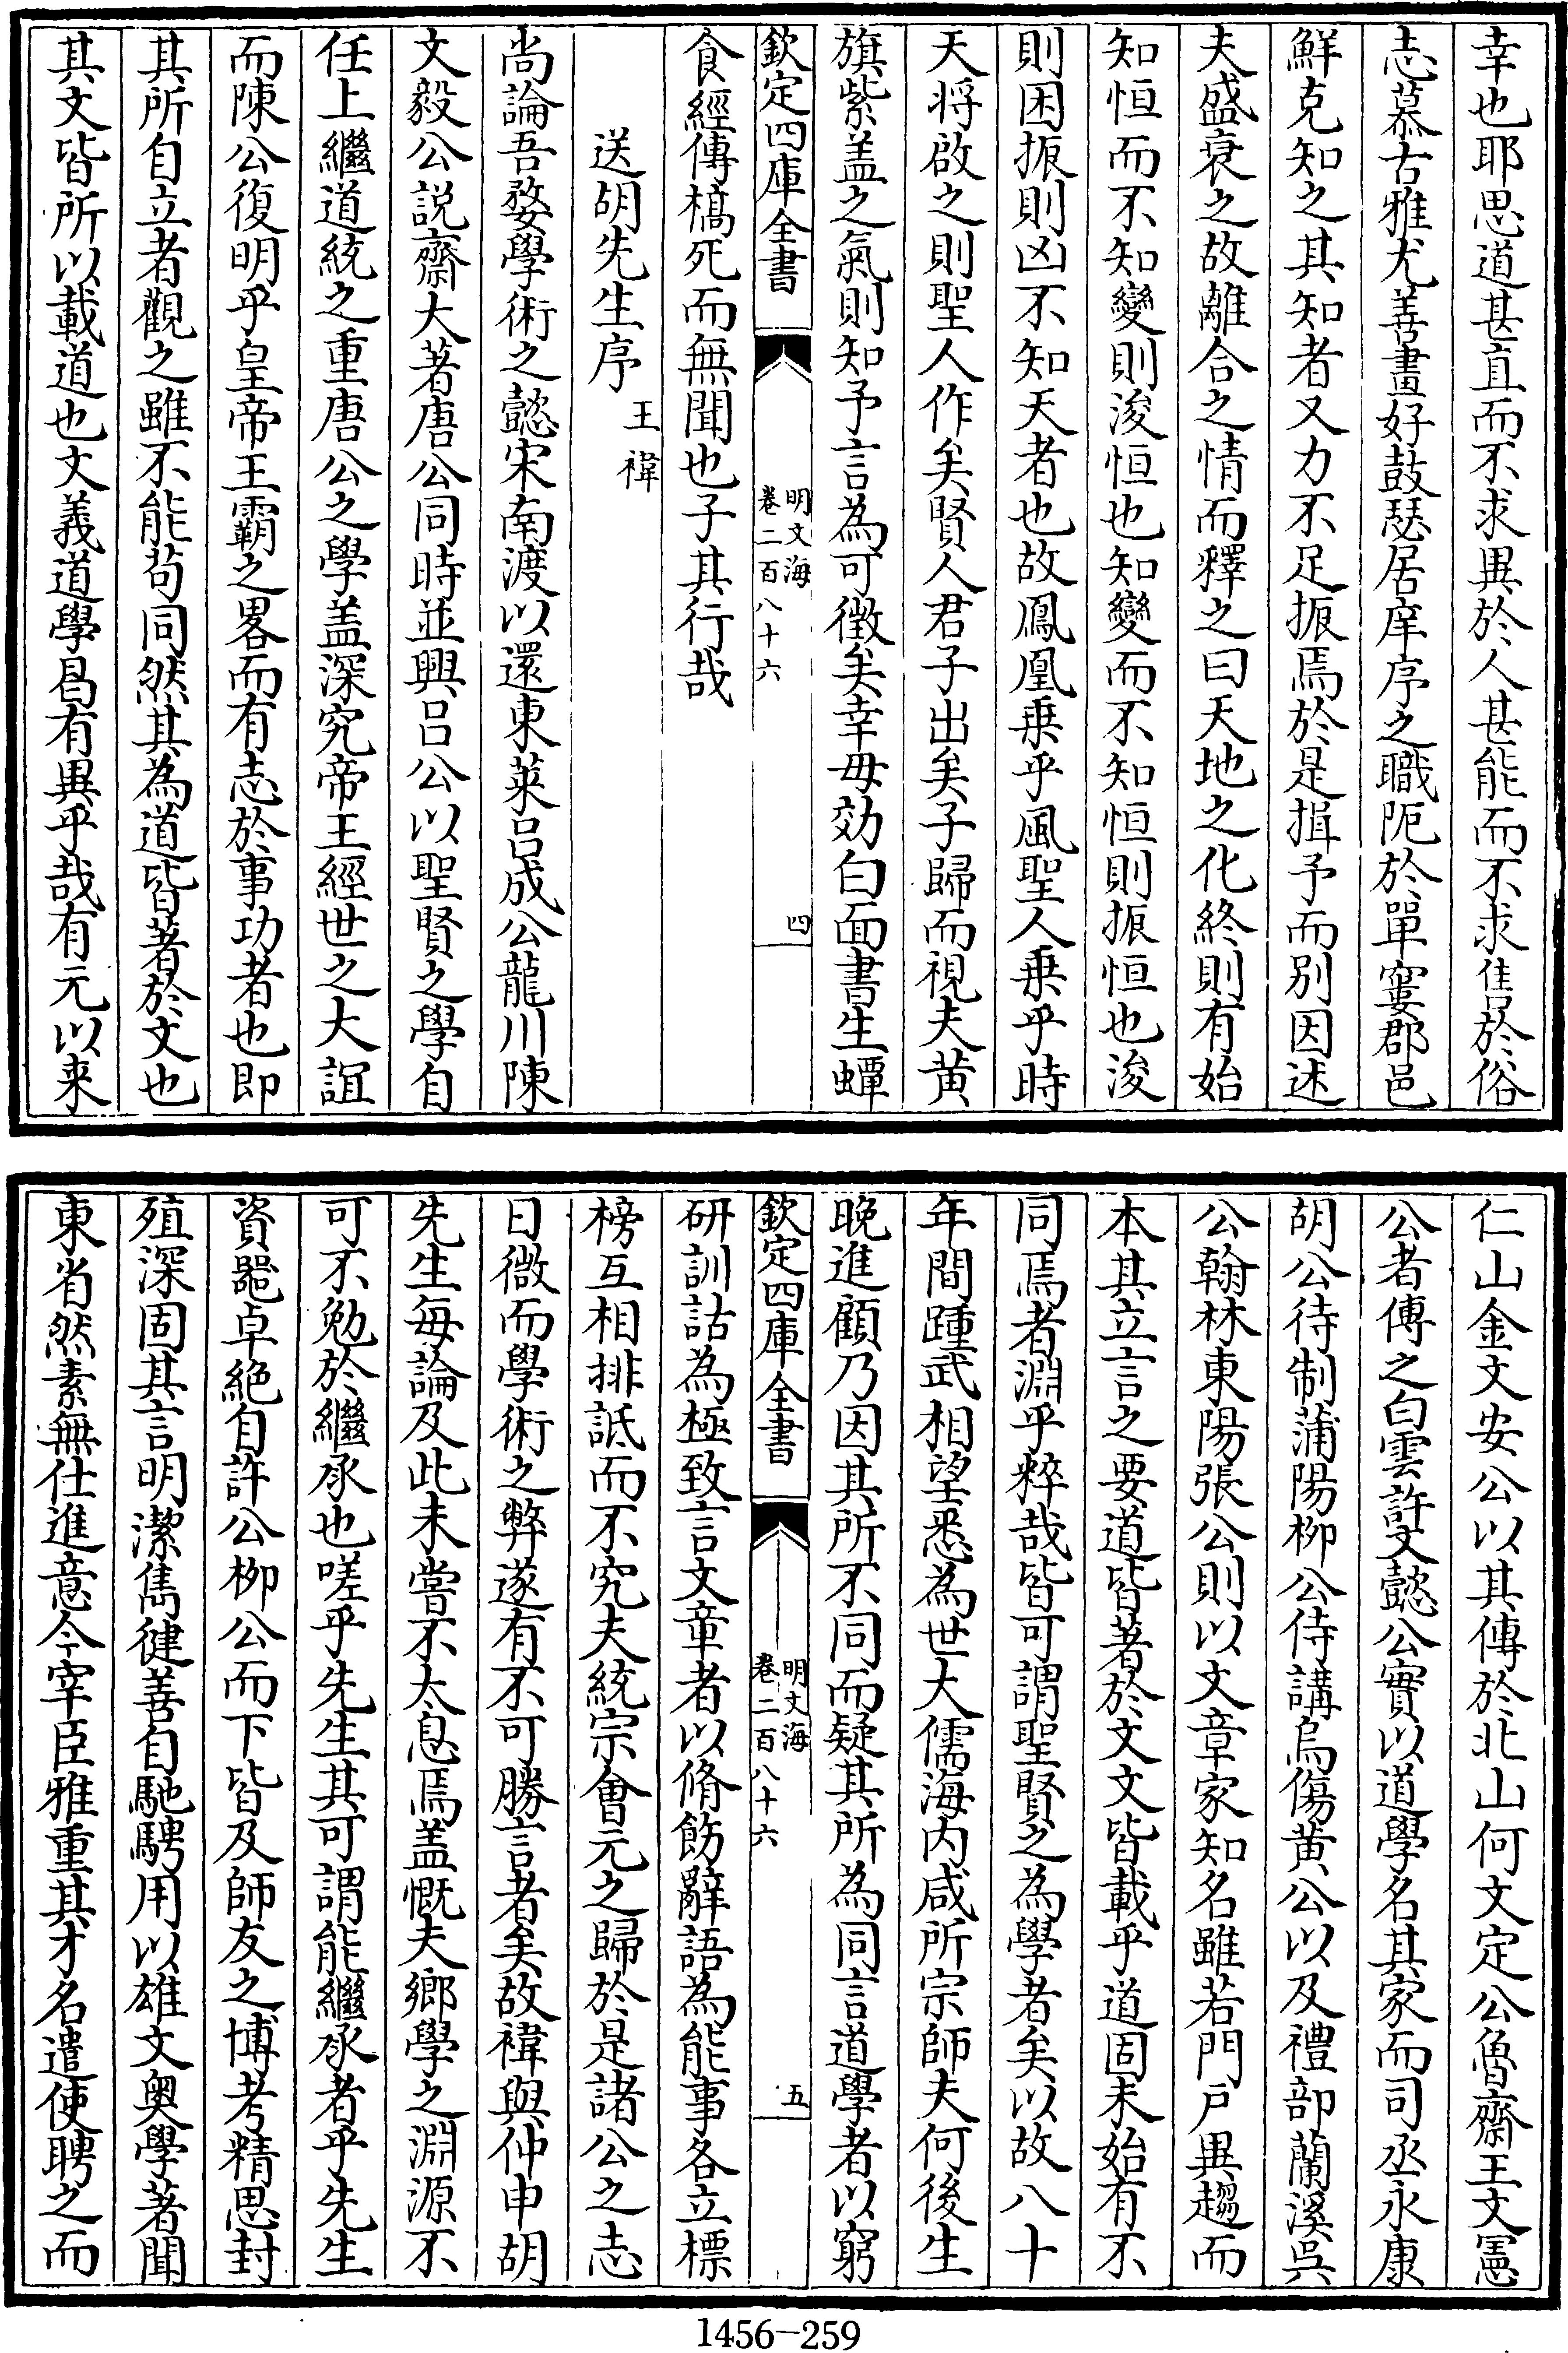 幸也耶思道甚直而不求異於人甚能而不求售於俗
志慕古雅尤善畫好鼓瑟居庠序之職阨於單窶郡邑
鮮克知之其知者又力不足振焉於是揖予而别因述
夫盛衰之故離合之情而釋之曰天地之化終則有始
知恒而不知變則浚恒也知變而不知恒則振恒也浚
則困振則凶不知天者也故鳳凰乗乎風聖人乗乎時
天将啟之則聖人作矣賢人君子出矣子歸而視夫黄
旗紫盖之氣則知予言為可徴矣幸毋効白面書生蟫
欽定四庫全書
明文海
卷二百八十六
四
食經傳槁死而無聞也子其行哉
送胡先生序 王褘
尚論吾婺學術之懿宋南渡以還東萊吕成公龍川陳
文毅公説齋大著唐公同時並興吕公以聖賢之學自
任上繼道統之重唐公之學盖深究帝王經世之大誼
而陳公復明乎皇帝王霸之畧而有志於事功者也即
其所自立者觀之雖不能茍同然其為道皆著於文也
其文皆所以載道也文義道學曷有異乎哉有元以来
仁山金文安公以其傳於北山何文定公魯齋王文憲
公者傳之白雲許文懿公實以道學名其家而司丞永康
胡公待制蒲陽栁公侍講烏傷黄公以及禮部蘭溪吳
公翰林東陽張公則以文章家知名雖若門戸異趨而
本其立言之要道皆著於文文皆載乎道固未始有不
同焉者淵乎粹哉皆可謂聖賢之為學者矣以故八十
年間踵武相望悉為世大儒海内咸所宗師夫何後生
晚進顧乃因其所不同而疑其所為同言道學者以窮
欽定四庫全書
明文海
卷二百八十六
五
研訓詁為極致言文章者以脩飭辭語為能事各立標
榜互相排詆而不究夫統宗會元之歸於是諸公之志
日微而學術之弊遂有不可勝言者矣故褘與仲申胡
先生每論及此未嘗不太息焉盖慨夫鄉學之淵源不
可不勉於繼承也嗟乎先生其可謂能繼承者乎先生
資噐卓絶自許公栁公而下皆及師友之博考精思封
殖深固其言明潔雋健善自馳騁用以雄文奥學著聞
東省然素無仕進意今宰臣雅重其才名遣使聘之而
1456-259